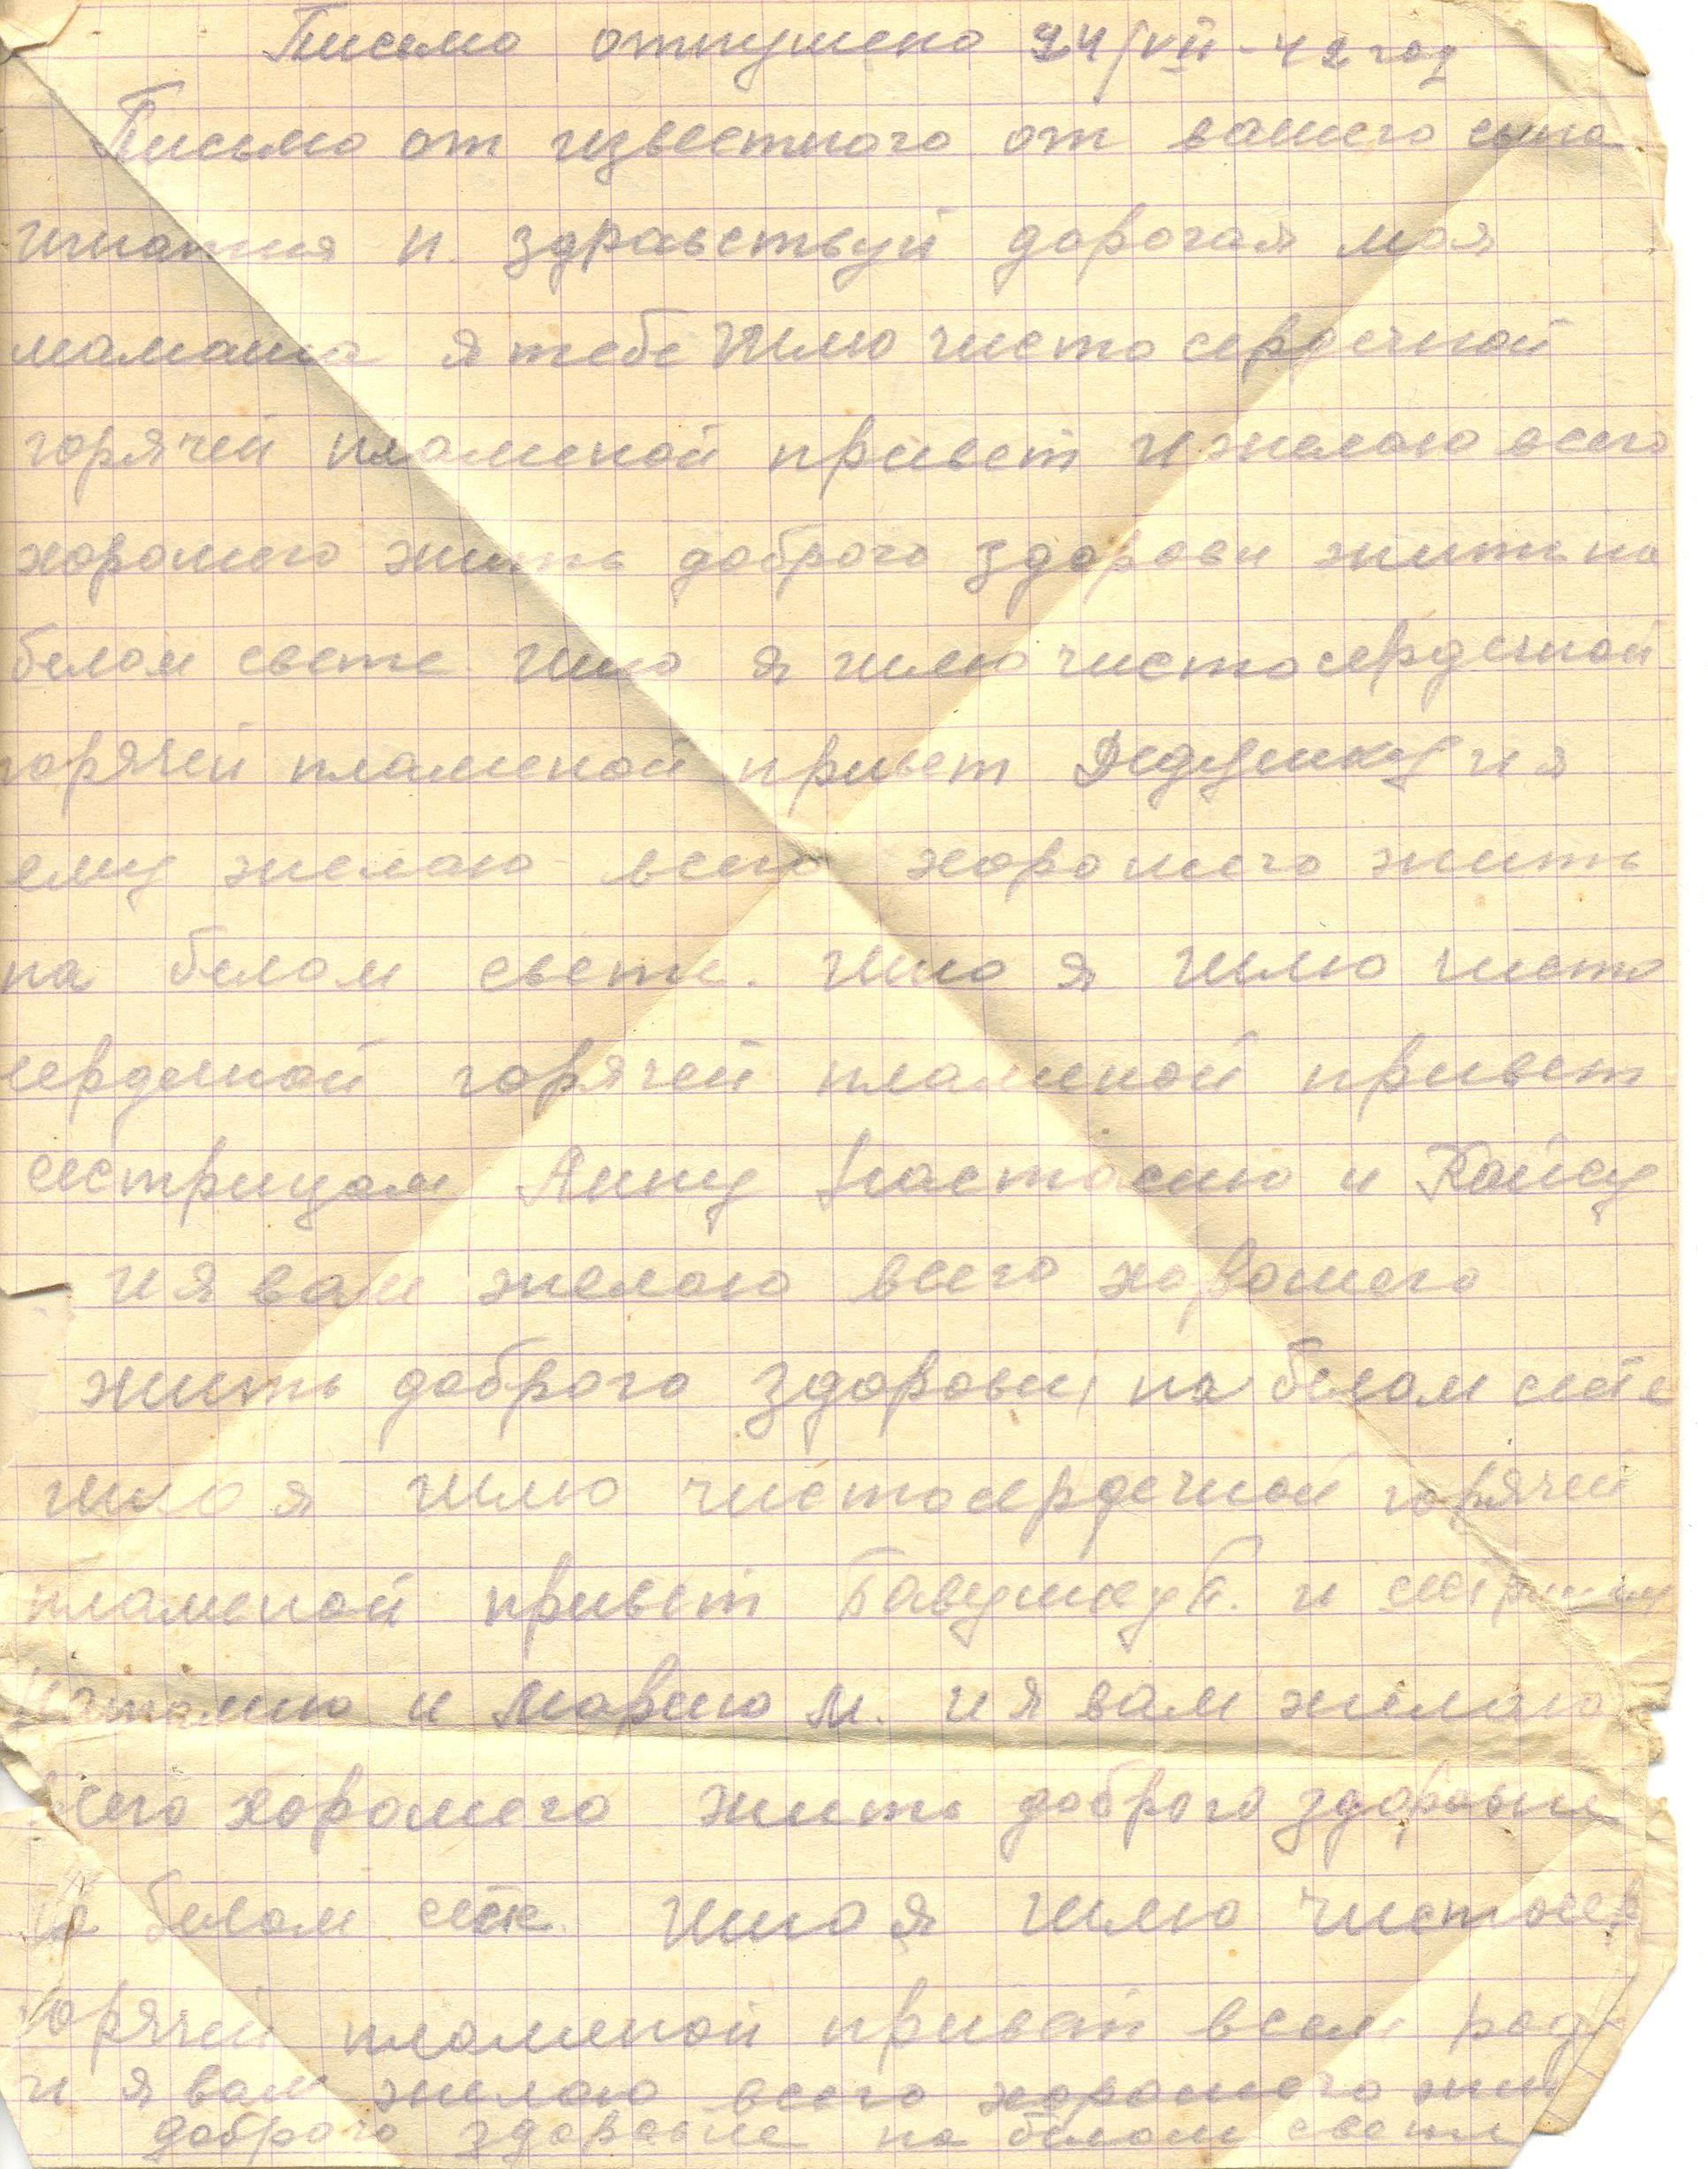 Письмо отпущено 24/VII-42 год
Письмо от известного от вашего сына
игнатия и. здравствуй дорогая моя
мамаша я тебе шлю чисто сердечной
горячей пламеной привет и желаю всего
хорошего жить доброго здорови жить на
белом свете. ишо я шлю чистосердечной
горячей пламеной привет Дедушку и я
ему желаю всего хорошего жить
на белом свете. ишо я шлю чисто
сердечной горячей пламеной привет
сестрицам Анну Настасию и Раису
и я вам желаю всего хорошего
жить доброго здоровьи, на белом свете
ишо я шлю чистосердечной горячей
пламеной привет Бавушку Т. и
Наталию и Марию М. и я вам желаю
всего хорошего жить доброго здоровьи
на белом свете. ишо я шлю чистосер
горячей пламеной привет всем род
и я вам желаю всего хорошего жит
доброго здоровье на белом свете